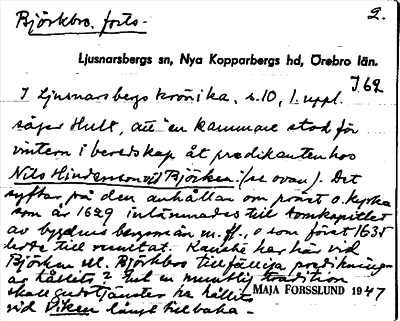 Björkbro. forts.
2.
Ljusnarsbergs sn, Nya Kopparbergs hd, Örebro län.
I 62
I Ljusnarsbergs krönika, s. 10, 1. uppl.
säger Hult, att en kammare stod för
vintern i beredskap åt predikanten hos
Nils Hindersson vid Björken (se ovan). Det
syftar på den anhållan om präst o. kyrka
som år 1629 inlämnades till Domkapitlet
av bygdens bergsmän m. fl., o som först 1635
ledde till resultat. Kanske har här vid
Björken el. Björkbro tillfälliga predikningar
hållits? Enl en muntlig tradition
skall gudstjänster ha hållits
MAJA FORSSLUND 1947
vid Viken långt tillbaka.